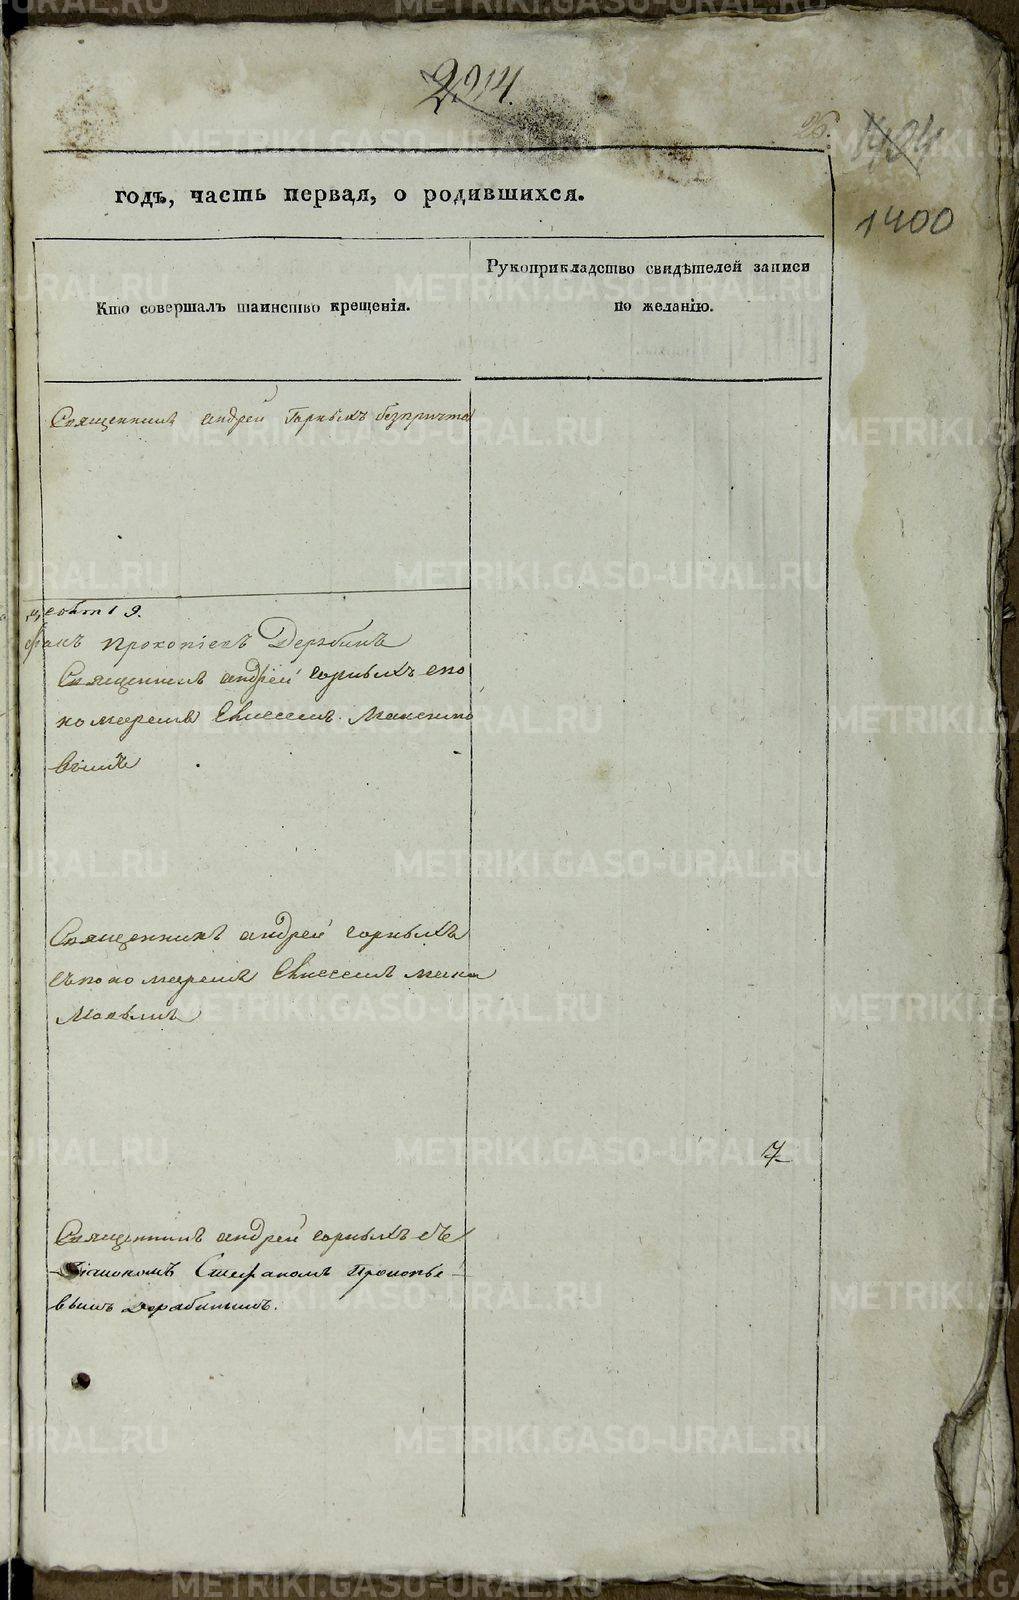 294.
26.
1404
1400
годъ, часть первая, о родившихся.
Кто совершалъ таинство крещенія.
Рукоприкладство свидѣтелей записи
по желанію.
Священникъ андрей Горныхъ безпричта
19.
Прокопіевъ Дерябинъ
Священникъ андрей горныхъ спо
номаремъ Елисеемъ Максимо
вымъ
Священникъ андрей горныхъ
съпономаремъ Елисеемъ макси
мовымъ
7
Священникъ андрей горныхъ съ
діакономъ Стефаномъ Прокопье-
вымъ Дерабинымъ.
METRIKI.GASO-URAL.RU